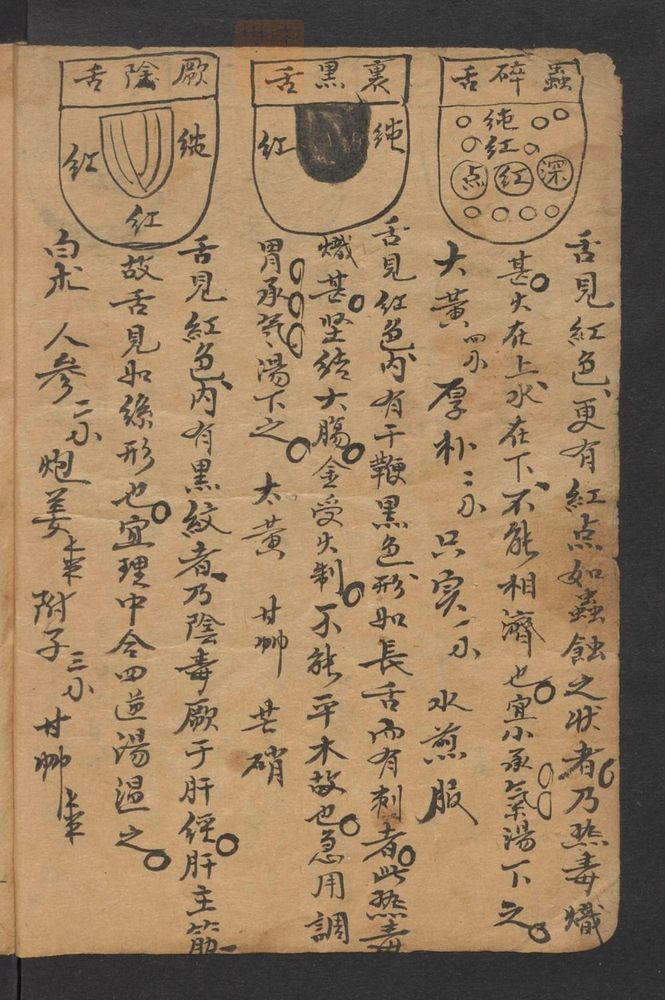 蟲碎舌
純紅
深紅点
舌見紅色更有紅点如蟲蝕之狀者乃熱毒熾
甚火在上水在下不能相濟也宜小承氣湯下之
大黃四小 厚朴二小 只实一小 水煎服
裏黑舌
純紅
舌見紅色内有干鞭黑色形如長舌而有刺者此熱毒
熾甚坚结大腸金受火制不能平木故也急用調
胃承氣湯下之 大黃 甘艸 芒硝
厥陰舌
純紅
紅
舌見紅色内有黑紋者乃陰毒厥于肝经肝主筋
故舌見如絲形也宜理中合四逆湯温之
白朮 人參二小 炮姜 附子三小 甘艸